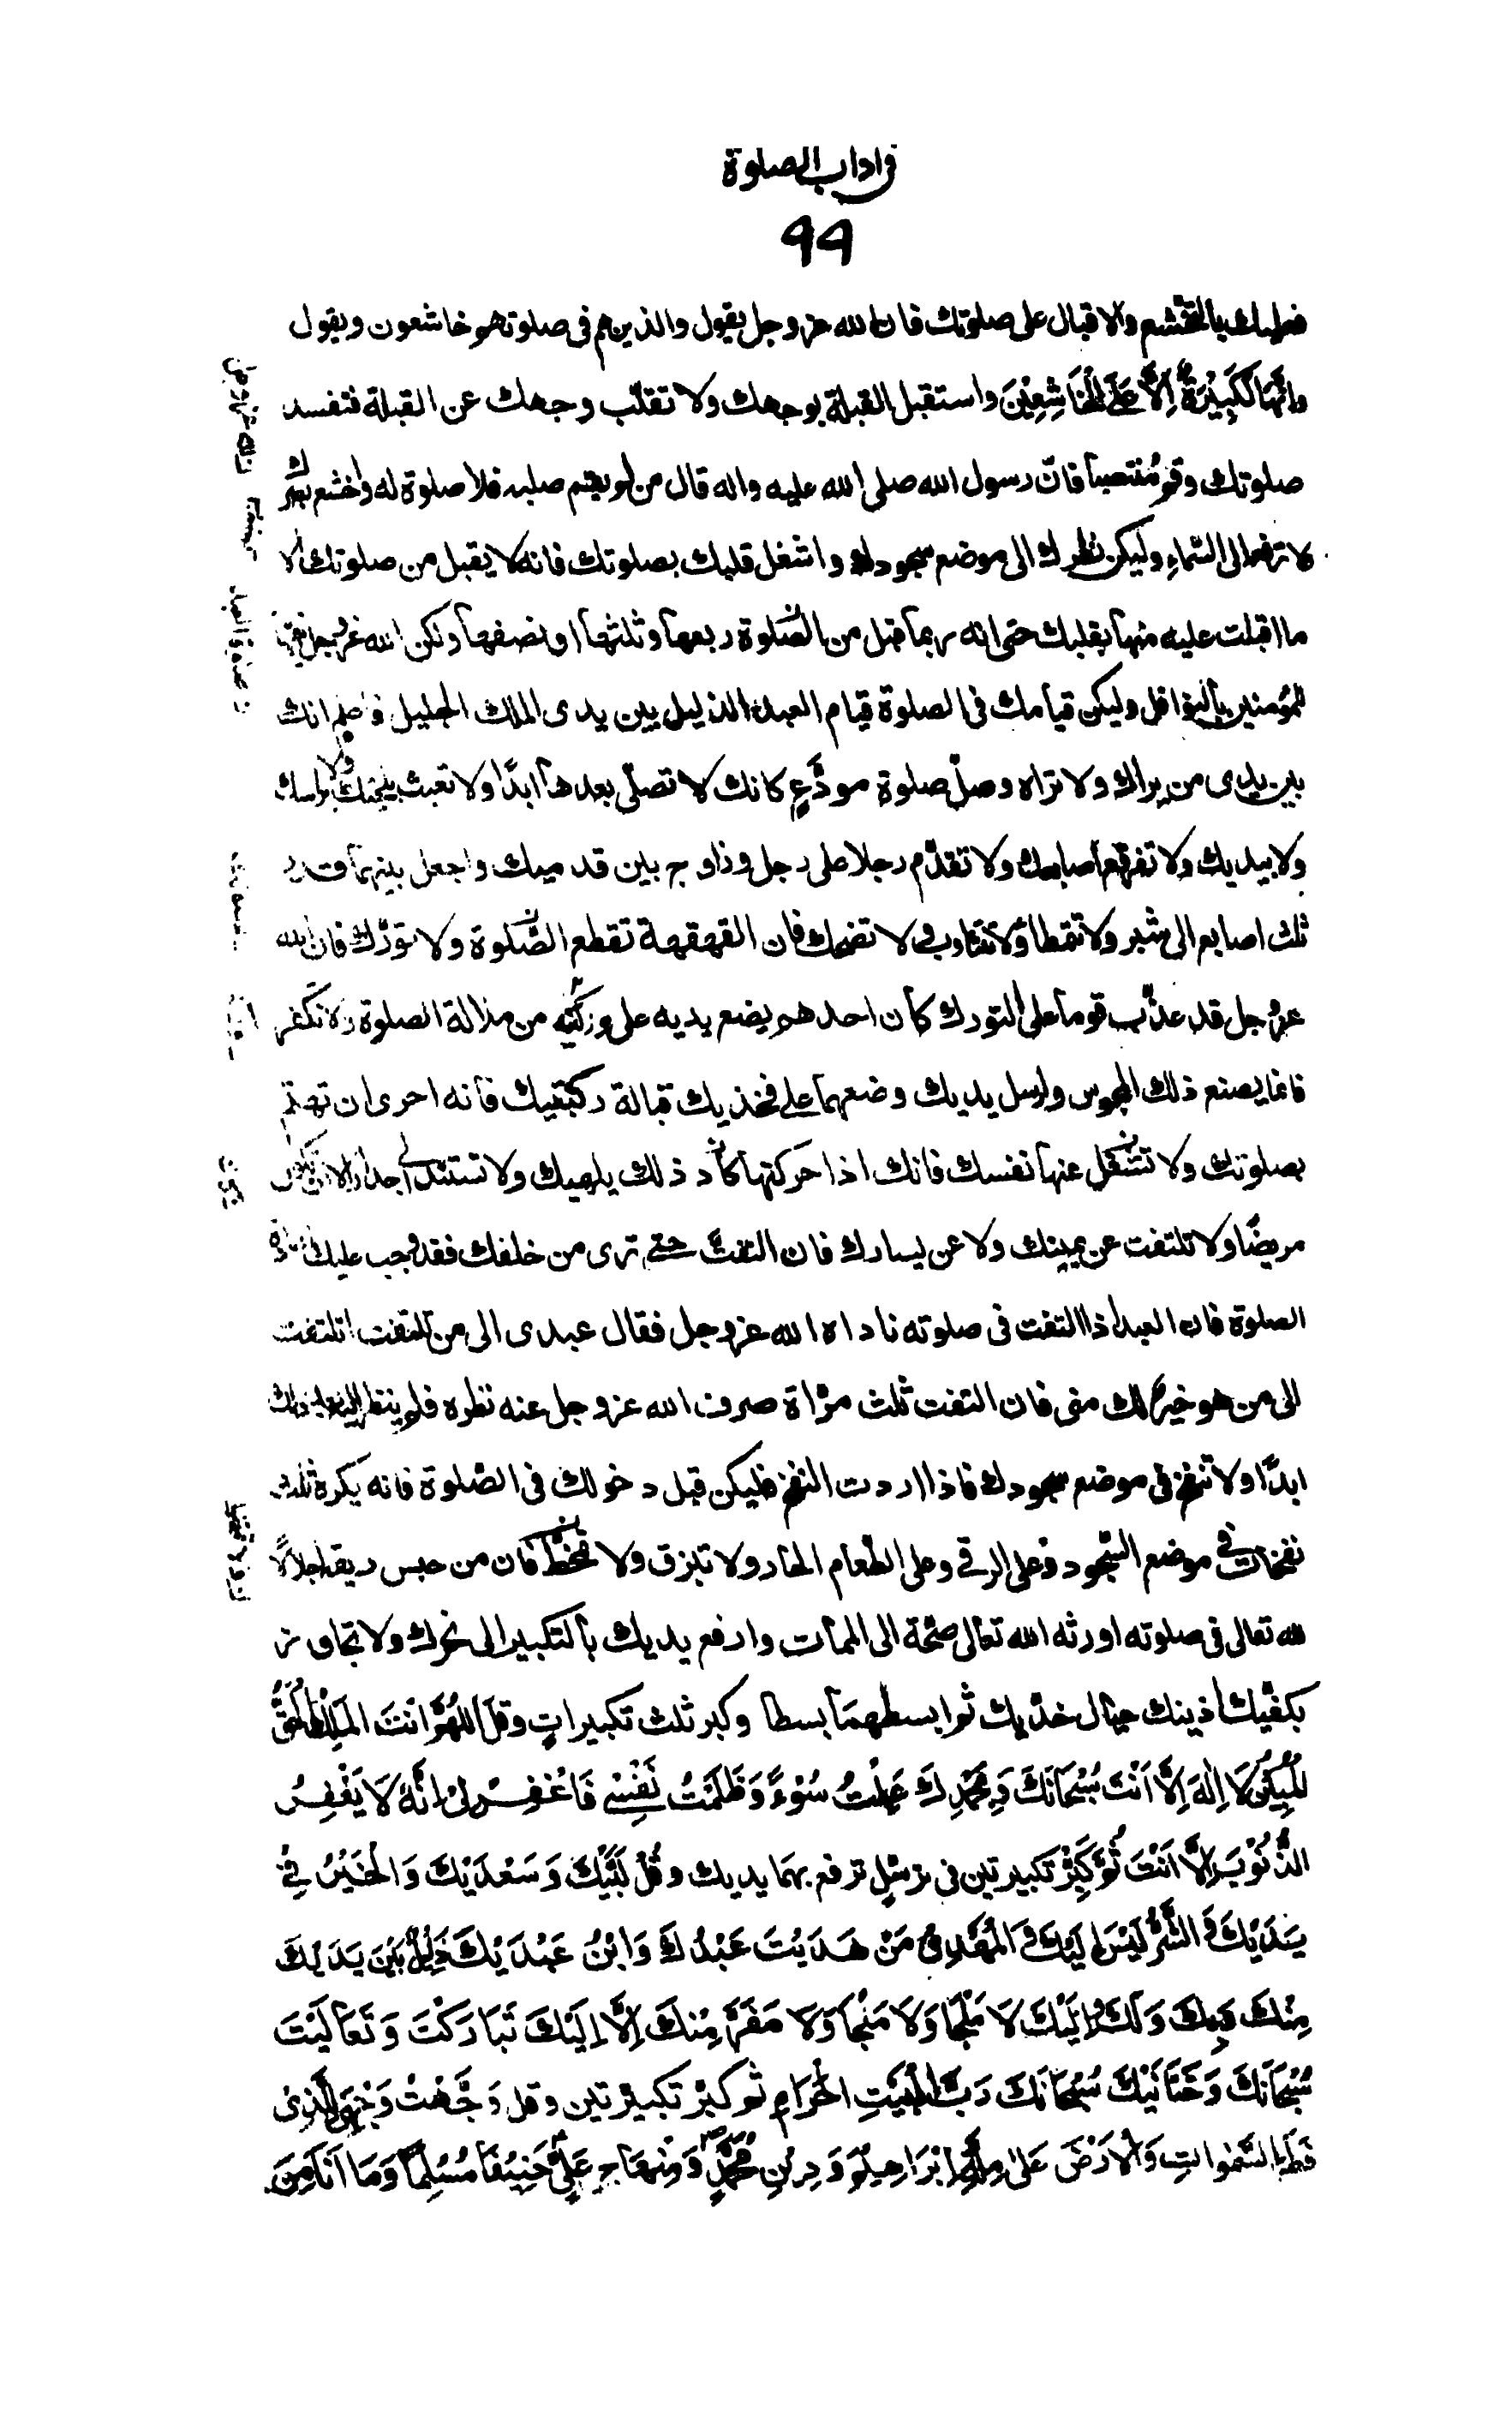 فى اداب الصلوة
٩٩
فعليك بالتخشع والاقبال على صلوتك فان الله عز وجل يقول والذين هم فى صلوتهم خاشعون ويقول
وانها لَكَبِيْرَةٌ اِلَّا عَلَى الْخَاشِعِيْنَ واستقبل القبلة بوجهك ولا تقلّب وجهك عن القبلة فتفسد
صلوتك وقم مُنتصبا فانّ رسول الله صلى الله عليه واله قال من لم يقم صلبه فلا صلوة له واخشع ببصرك
لا ترفعه الى السّماءِ وليكن نظرك الى موضع سجودك واشغل قلبك بصلوتك فانه لا يقبل من صلوتك الا
ما اقبلت عليه منها بقلبك حتى انه ربما قبل من الصّلوة ربعها وثلثها او نصفها ولكن الله عز وجل يتمها
للمؤمنين بالنوافل وليكن قيامك فى الصلوة قيام العبد الذليل بين يدى الملك الجليل فاعلم انك
بين يدى من يراك ولا تراه وصلّ صلوة مودَّعٍ كانك لا تصلّى بعدها ابدًا ولا تعبث بلحيتك ولا براسك
ولا بيديك ولا تفرقع اصابعك ولا تقدّم رجلا على رجل وزاوج بين قدميك واجعل بينهما قدر
ثلث اصابع الى شبر ولا تمطا ولا تثاوب ولا تضحك فان القهقهة تقطع الصّلوة ولا تتورّك فان الله
عز وجل قد عذّب قوما على التورك كان احدهم يضع يديه على وركيه من ملالة الصلوة ولا تكفر
فانما يصنع ذلك المجوس وارسل يديك وضعهما على فخذيك قبالة ركبتيك فانه احرى ان تهتم
بصلوتك ولا تشتغل عنها نفسك فانك اذا حَركتها كان ذلك يلهيك ولا تستند الى جدار الا ان تكون
مريضًا ولا تلتفت عن يمينك ولا عن يسارك فان التفتَّ حتى ترى من خلفك فقد وجب عليك اعادة
الصلوة فان العبد اذا التفت فى صلوته ناداه الله عز وجل فقال عبدى الى من تلتفت اتلتفت
الى من هو خير لك منى فان التفت ثلث مرّاة صرف الله عز وجل عنه نظره فلم ينظر اليه بعد ذلك
ابدًا ولا تنفخ فى موضع سجودك فاذا اردت النفخ فليكن قبل دخولك فى الصّلوة فانه يكره ثلث
نفخات فى موضع السّجود وعلى الرقى وعلى الطّعام الحار ولا تبزق ولا تمخط فان من حبس ريقه اجلالًا
لله تعالى فى صلوته اورثه الله تعالى صحّة الى الممات وارفع يديك بالتكبير الى نحرك ولا تجاوز
بكفّيك اذنيك حيال خدّيك ثم ابسطهما بسطا وكبر ثلث تكبيراتٍ وقل اَللهُمَّ انْتَ الْمَلِكُ الْحَقُّ
الْمُبِيْنُ لَا اِلٰهَ اِلَّا اَنْتَ سُبْحَانَكَ وَبِحَمْدِكَ عَمِلْتُ سُوْءًا وَظَلَمْتُ نَفْسِىْ فَاغْفِرْ لِىْ اِنَّهٗ لَا يَغْفِرُ
الذُّنُوْبَ اِلَّا اَنْتَ ثُمَّ كَبِّرْ تكبيرتين فى ترسّلٍ ترفع بهما يديك وقُلْ لَبَّيْكَ وَسَعْدَيْكَ وَالْخَيْرُ فِىْ
يَدَيْكَ وَ الشَّرُّ لَيْسَ اِلَيْكَ وَ الْمَهْدِىُّ مَنْ هَدَيْتَ عَبْدُكَ وَابْنُ عَبْدَيْكَ ذَلِيْلٌ بَيْنَ يَدَيْكَ
مِنْكَ وَبِكَ وَلَكَ وَاِلَيْكَ لَا مَلْجَاَ وَلَا مَنْجَا وَلَا مَفَرَّ مِنْكَ اِلَّا اِلَيْكَ تَبَارَكْتَ وَتَعَالَيْتَ
سُبْحَانَكَ وَحَنَانَيْكَ سُبْحَانَكَ رَبَّ الْبَيْتِ الْحَرَامِ ثم كبرْ تكبيرْتين وقل وَجَّهْتُ وَجْهِىَ لِلَّذِىْ
فَطَرَ السَّمٰوَاتِ وَالْاَرْضَ عَلٰى مِلَّةِ اِبْرَاهِيْمَ وَ دِيْنِ مُحَمَّدٍ وَمِنْهَاجِ عَلِىٍّ حَنِيْفًا مُسْلِمًا وَمَا اَنَا مِنَ